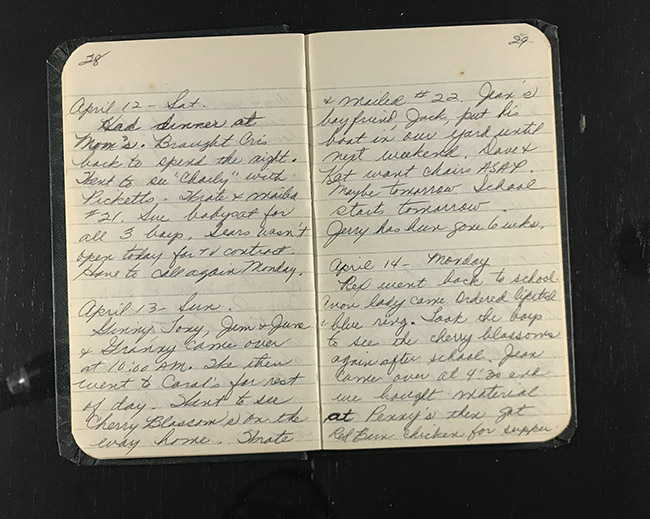 28
April 12 - Sat.
Had dinner at
Mom's. Brought Cris
back to spend the night.
Went to see "Charly" with
Picketts. Wrote & mailed
#21. Sue babysat for
all 3 boys. Sears wasn't
open today for TV contract.
Have to call again Monday.
April 13 - Sun.
Ginny, Tony, Jim & June
& Granny came over
at 10:00 AM. We then
went to Carol's for rest
of day. Went to see
Cherry Blossom's on the
way home. Wrote
29
& mailed #22. Jean's
boyfriend, Jack, put his
boat in our yard until
next weekend. Dave &
Kat want chairs ASAP.
Maybe tomorrow. School
starts tomorrow.
Jerry has been gone 6 wks.
April 14 - Monday
Rex went back to school.
Avon lady came. Ordered lipstick
& blue ring. Took the boys
to see the cherry blossoms
again after school. Jean
came over at 4:30 and
we bought material
at Penny's then got
Red Barn chicken for supper.